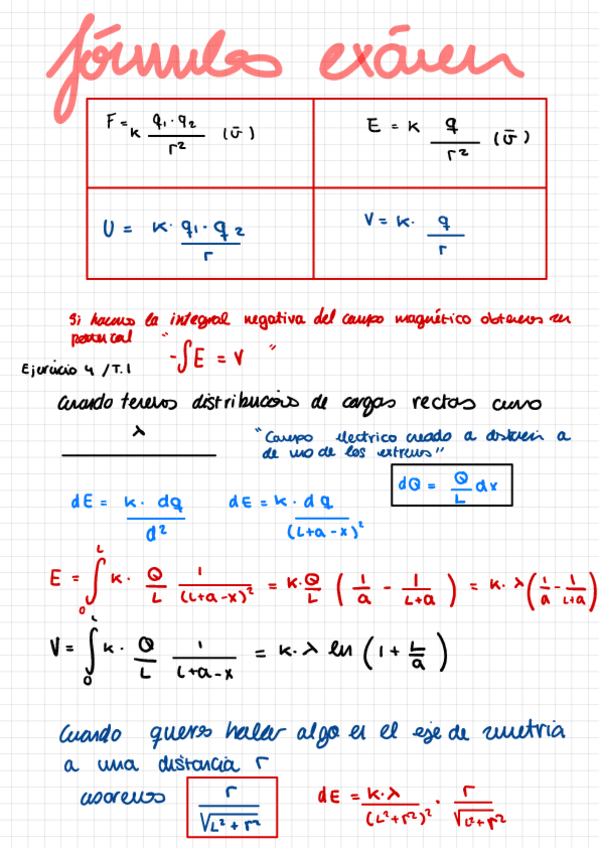 fórmulas exámen
F = K q₁·q₂ / r² (ū)
E = K q / r² (ū)
U = K· q₁·q₂ / r
V = K· q / r
Si hacemos la integral negativa del campo magnético obtenemos en
potencial " -∫E = V "
Ejercicio 4 /T.1
Cuando tenemos distribucois de cargas rectas como
λ
"Campo electrico creado a distancia a
de uno de los extremos"
dQ = Q/L dx
dE = K· dq / d²
dE = K· dq / (L+a-x)²
E = ∫₀ᴸ K· Q/L 1/(L+a-x)² = K·Q/L (1/a - 1/(L+a)) = K·λ(1/a - 1/(L+a))
V = ∫₀ᴸ K· Q/L 1/(L+a-x) = K·λ ln (1 + L/a)
Cuando queremos haller algo en el eje de simetria
a una distancia r
usaremos r / √(L²+r²)
dE = K·λ / (L²+r²)² · r / √(L²+r²)